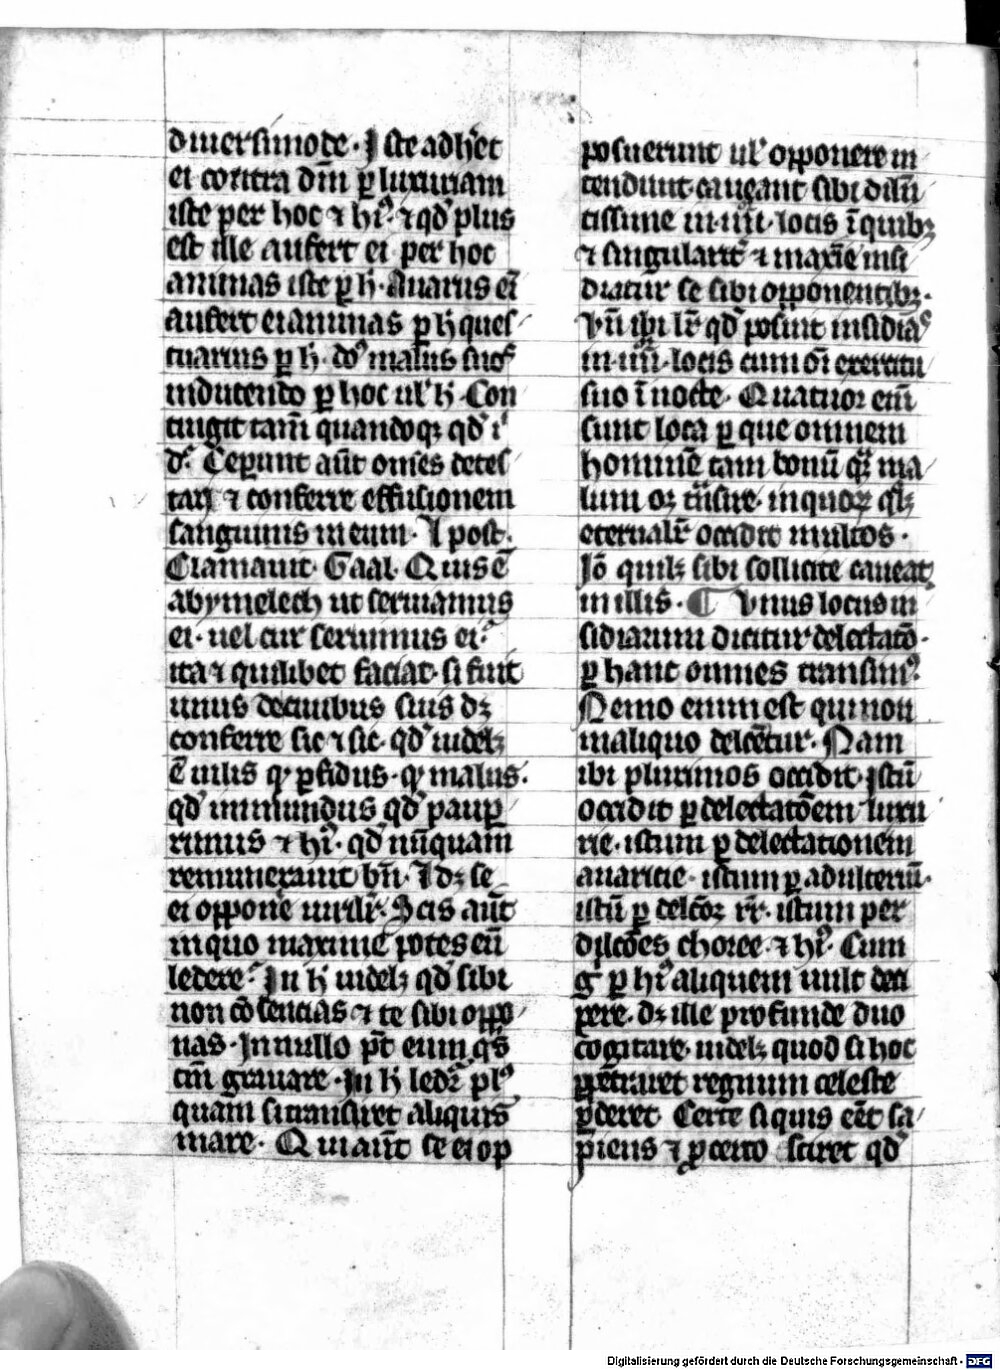 diuersimode. Iste adhꝫet
ei contra dm̄ ꝑ luxuriam
iste per hoc ⁊ hi⁹. ⁊ qd̕ plus
est ille aufert ei per hoc
animas iste ꝑ h̕. Auarus ei̅
aufert ei animas ꝑ h̕ ques/
tuarius ꝑ h̕. do⁹ malus suos
inducendo ꝑ hoc ul̕ h̕. Con
tingit tam̄ quandoqꝫ qd̕ i
d̕. Ceperunt aūt om̄es detes/
tari ⁊ conferre effusionem
sanguinis in eum. I post.
Clamauit. Gaal. Quis ē
abymelech ut seruiamus
ei. uel cur seruimus ei.
ita ⁊ quilibet faciat. si fuit
unus de ciuibus suis dꝫ
conferre sic ⁊ sic. qd̕ uidelꝫ
ē uilis qꝛ ꝑfidus. qꝛ malus.
qd̕ inmundus qd̕ pauꝑ/
rimus ⁊ hi⁹. qd̕ nūquam
remunerauit bn̄. I dꝫ se
ei opponē uirilr̕. Scis aūt
in quo maxime potes eū
ledere. In h̕ uidelꝫ qd̕ sibi
non cōsencias ⁊ te sibi oppo/
nas. In nullo pōt eum qͥs
tm̄ grauare. In h̕ ledr̕ pl⁹
quam si transiret aliquis
mare. Qui aūt se ei op
posuerunt ul̕ opponere in
tendunt caueant sibi dilig̅
tissime in .iiii. locis ī quibꝫ
⁊ singularit̕ ⁊ maxīe insi
diatur se sibi opponentibꝫ.
Vn̄ ibi lr̕ qd̕ posuit insidias
in .iiii. locis cum om̄i exercitu
suo ī nocte. Quatuor eni̅
sunt loca ꝑ que omnem
hominē tam bonū qͣm ma/
lum oꝫ tn̄sire. in quoꝝ qͦlꝫ
eternalr̕ occidit multos.
Iō quilꝫ sibi sollicite caueat
in illis. ¶ Vnus locus in
sidiarum dicitur delectatō.
ꝑ hanc omnes transim⁹.
Nemo enim est qui non
in aliquo delc̄etur. Nam
ibi plurimos occidit. istū
occidit ꝑ delectatōem luxu
rie. istum ꝑ delectationem
auaricie. istum ꝑ adulteriū.
istū ꝑ delc̄oꝫ rr̕. istum per
dilcōes choree. ⁊ hi⁹. Cum
g̕ ꝑ hi⁹ aliquem uult deci
pere. dꝫ ille profunde duo
cogitare. uidelꝫ quod si hoc
ꝑpetraret regnum celeste
ꝑderet. Certe si quis eēt sa/
piens ⁊ ꝓ certo sciret qd̕